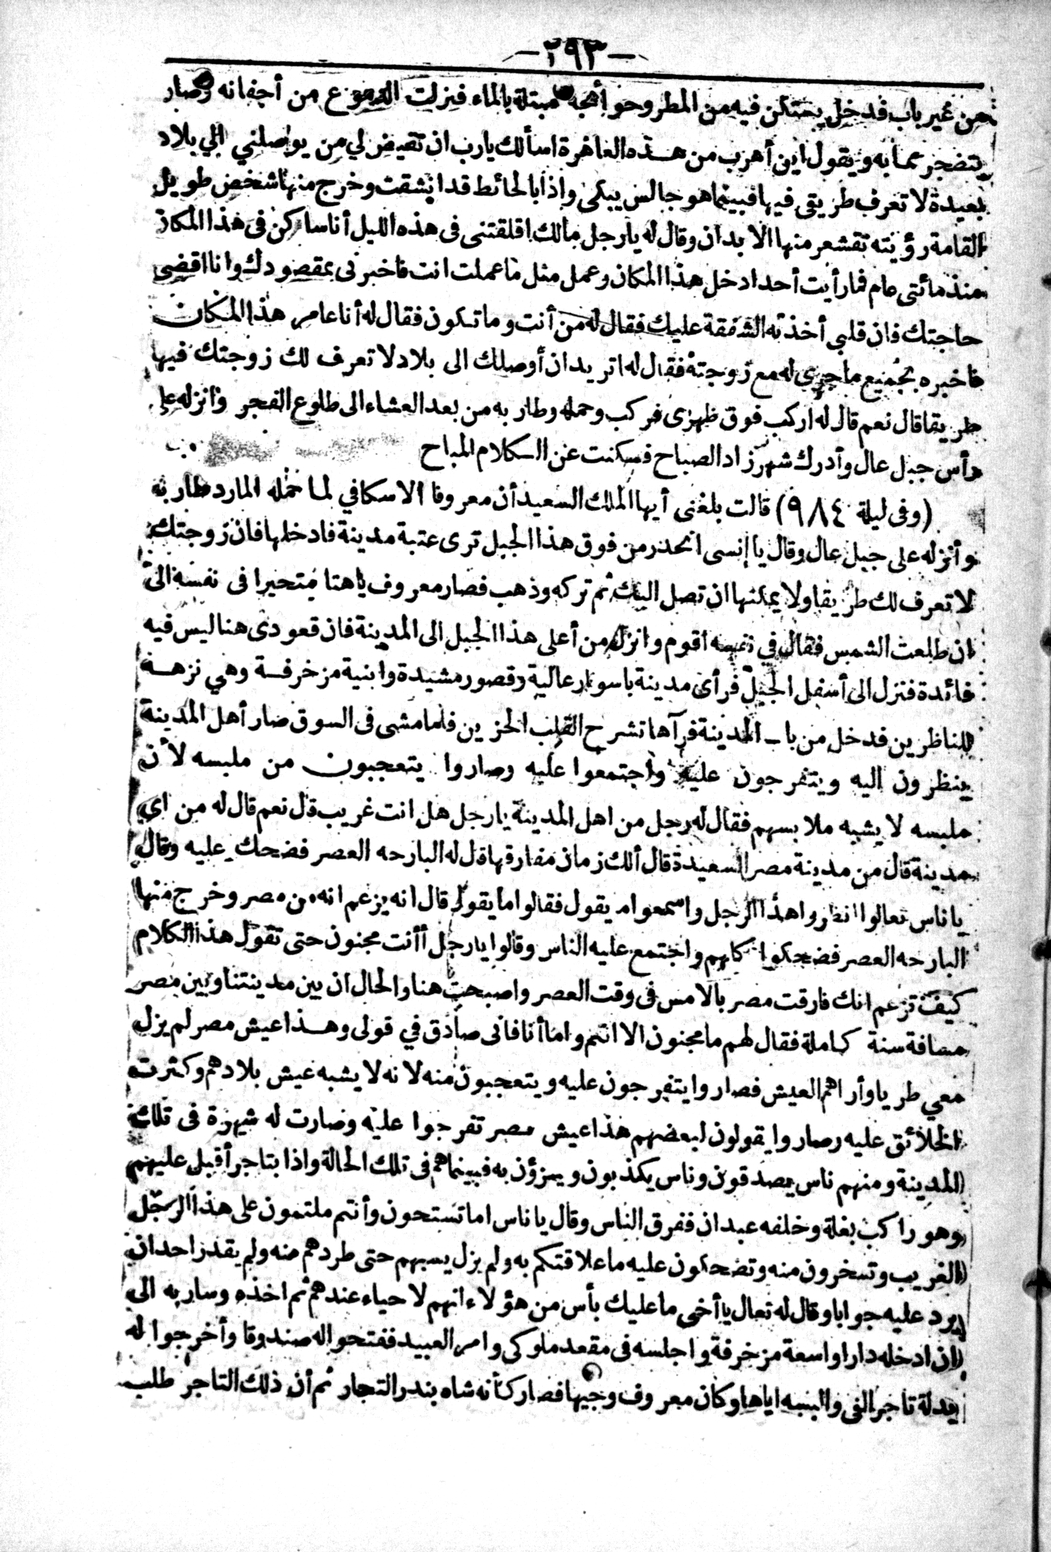 — ٢٩٣ —
من غير باب فدخل يستكن فيه من المطر وحوائجه مبتلة بالماء فنزلت الدموع من أجفانه وصار
يتضجر مما به ويقول اين أهرب من هذه العاهرة اسألك يارب ان تقيض لي من يوصلني الي بلاد
بعيدة لا تعرف طريقى فيها فبينما هو جالس يبكى واذا بالحائط قد انشقت وخرج منها شخص طويل
القامة رؤيته تقشعر منها الابدان وقال له يارجل مالك اقلقتنى فى هذه الليل أنا ساكن فى هذا المكان
منذ مائتى عام فما رأيت أحدا دخل هذا المكان وعمل مثل ماعملت انت فاخبرنى بمقصودك وانا اقضى
حاجتك فان قلبى أخذته الشفقة عليك فقال له من أنت وما تكون فقال له أنا عامر هذا المكان
فاخبره بجميع ماجرى له مع زوجتة فقال له اتريد ان أوصلك الى بلاد لا تعرف لك زوجتك فيها
طريقا قال نعم قال له اركب فوق ظهرى فركب وحمله وطار به من بعد العشاء الى طلوع الفجر وأنزله على
رأس جبل عال وأدرك شهرزاد الصباح فسكتت عن الكلام المباح
(وفى ليلة ٩٨٤) قالت بلغنى أيها الملك السعيد أن معروفا الاسكافي لما حمله المارد طار به
وأنزله على جبل عال وقال يا إنسى انحدر من فوق هذا الجبل ترى عتبة مدينة فادخلها فان زوجتك
لا تعرف لك طريقا ولا يمكنها ان تصل اليك ثم تركه وذهب فصار معروف باهتا متحيرا فى نفسه الى
ان طلعت الشمس فقال في نفسه اقوم وانزل من أعلى هذا الجبل الى المدينة فان قعودى هنا ليس فيه
فائدة فنزل الى أسفل الجبل فرأى مدينة باسوار عالية وقصور مشيدة وابنية مزخرفة وهي نزهة
للناظرين فدخل من باب المدينة فرآها تشرح القلب الحزين فلما مشى فى السوق صار أهل المدينة
ينظرون اليه ويتفرجون عليه واجتمعوا عليه وصاروا يتعجبون من ملبسه لأن
ملبسه لا يشبه ملابسهم فقال له رجل من اهل المدينة يارجل هل انت غريب قال نعم قال له من اي
مدينة قال من مدينة مصر السعيدة قال ألك زمان مفارقها قال له البارحه العصر فضحك عليه وقال
ياناس تعالوا انظروا هذا الرجل واسمعوا ما يقول فقالوا ما يقول قال انه يزعم انه من مصر وخرج منها
البارحه العصر فضحكوا كلهم واجتمع عليه الناس وقالوا يارجل أأنت مجنون حتى تقول هذا الكلام
كيف تزعم انك فارقت مصر بالامس فى وقت العصر واصبحت هنا والحال ان بين مدينتنا وبين مصر
مسافة سنة كاملة فقال لهم ما مجنون الا انتم واما أنا فانى صادق في قولى وهذا عيش مصر لم يزل
معي طريا وأراهم العيش فصاروا يتفرجون عليه ويتعجبون منه لانه لا يشبه عيش بلادهم وكثرت
الخلائق عليه وصاروا يقولون لبعضهم هذا عيش مصر تفرجوا عليه وصارت له شهرة فى تلك
المدينة ومنهم ناس يصدقون وناس يكذبون ويهزؤن به فبينما هم فى تلك الحالة واذا بتاجر أقبل عليهم
وهو راكب بغلة وخلفه عبدان ففرق الناس وقال ياناس اما تستحون وأنتم ملتمون على هذا الرجل
الغريب وتسخرون منه وتضحكون عليه ما علاقتكم به ولم يزل يسبهم حتى طردهم عنه ولم يقدر احد ان
يرد عليه جوابا وقال له تعال يا أخى ما عليك بأس من هؤلاء انهم لا حياء عندهم ثم اخذه وسار به الى
ان ادخله دارا واسعة مزخرفة واجلسه فى مقعد ملوكى وامر العبيد ففتحوا له صندوقا وأخرجوا له
بدلة تاجر الفى والبسه اياها وكان معروف وجيها فصار كأنه شاه بندر التجار ثم أن ذلك التاجر طلب